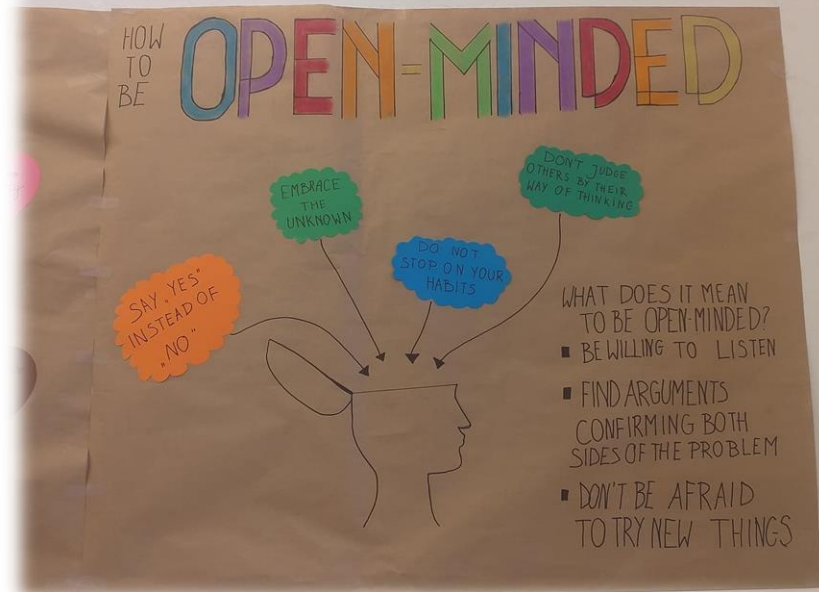 HOW
TO
BE
OPEN-MINDED
SAY „YES"
INSTEAD OF
„NO"
EMBRACE
THE
UNKNOWN
DO NOT
STOP ON YOUR
HABITS
DON'T JUDGE
OTHERS BY THEIR
WAY OF THINKING
WHAT DOES IT MEAN
TO BE OPEN-MINDED?
▪ BE WILLING TO LISTEN
▪ FIND ARGUMENTS
CONFIRMING BOTH
SIDES OF THE PROBLEM
▪ DON'T BE AFRAID
TO TRY NEW THINGS